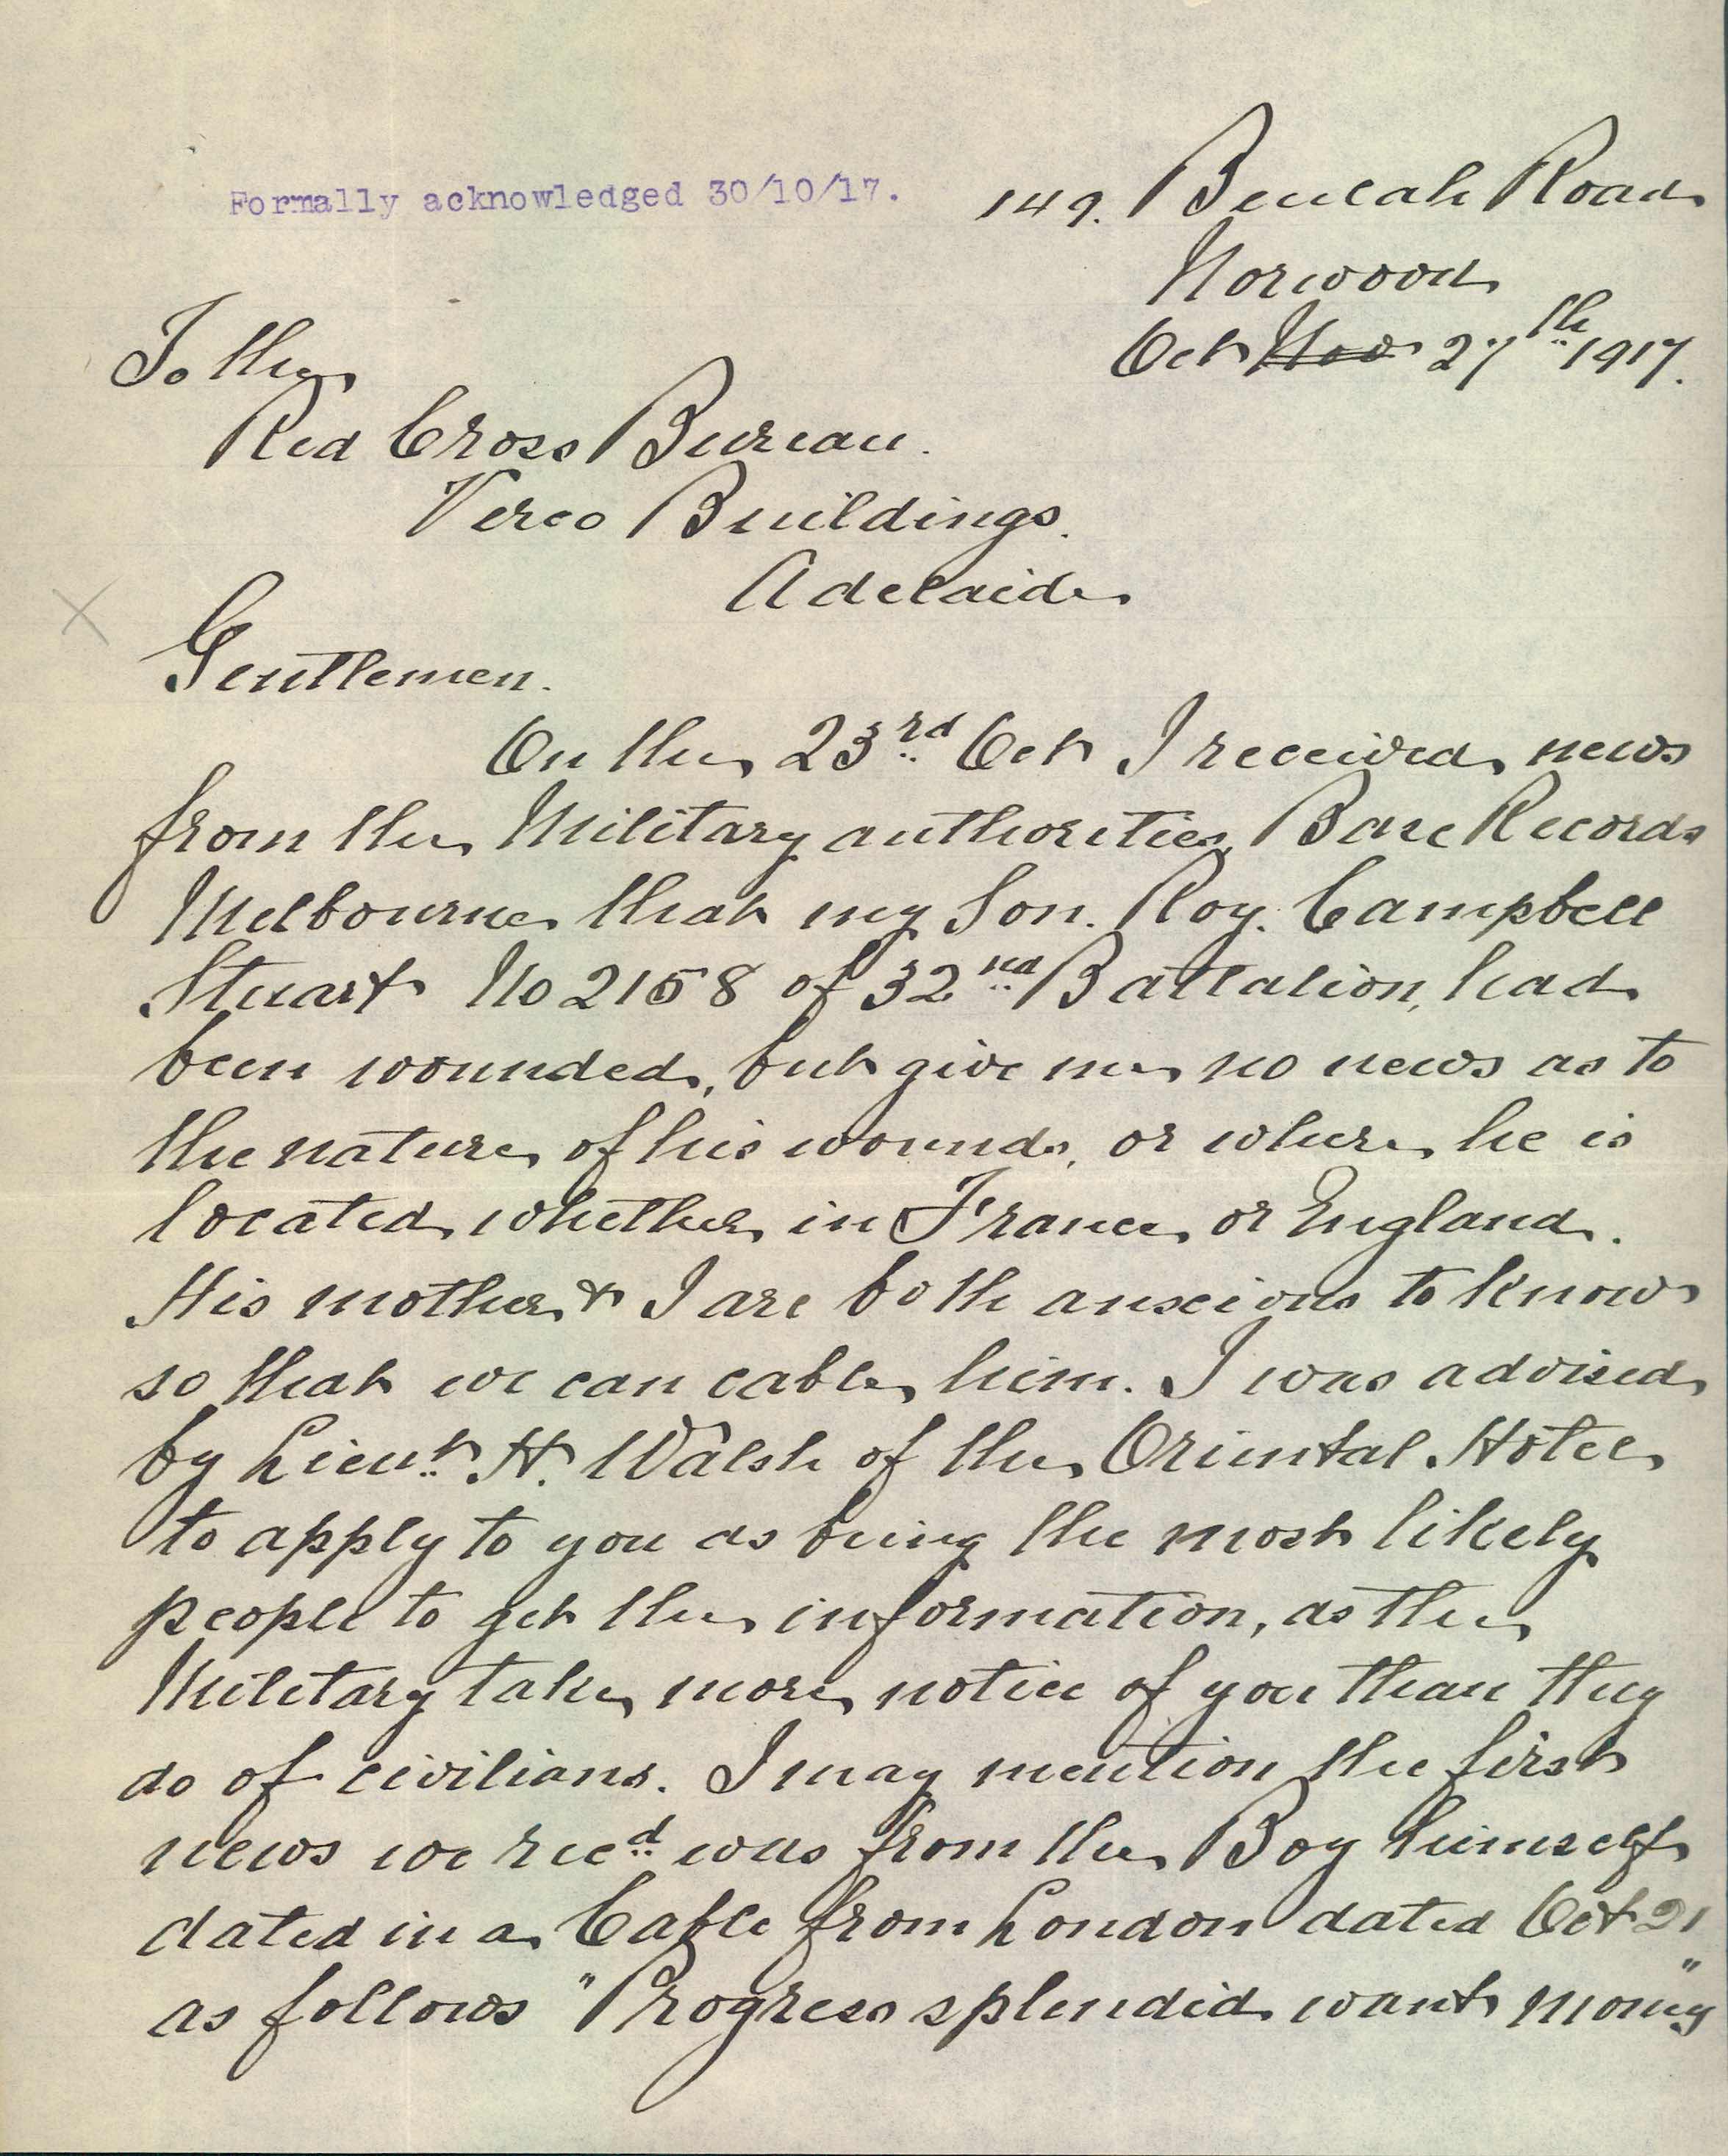 Formally acknowledged 30/10/17.
149. Beulah Road
Norwood
Oct Nov 27th 1917.
To the
Red Cross Bureau.
Verco Buildings.
Adelaide
Gentlemen.
On the 23rd Oct I received news
from the Military authorities, Base Records
Melbourne that my Son. Roy. Campbell
Stuart No 2158 of 32nd Battalion, had
been wounded, but give me no news as to
the nature of his wounds, or where he is
located whether in France or England.
His mother & I are both anxious to know
so that we can cable him. I was advised
by Lieut. H. Walsh of the Oriental Hotel
to apply to you as being the most likely
people to get the information, as the
Military take more notice of you than they
do of civilians. I may mention the first
news we recd was from the Boy himself
dated in a Cable from London dated Oct 21
as follows "Progress splendid want money"